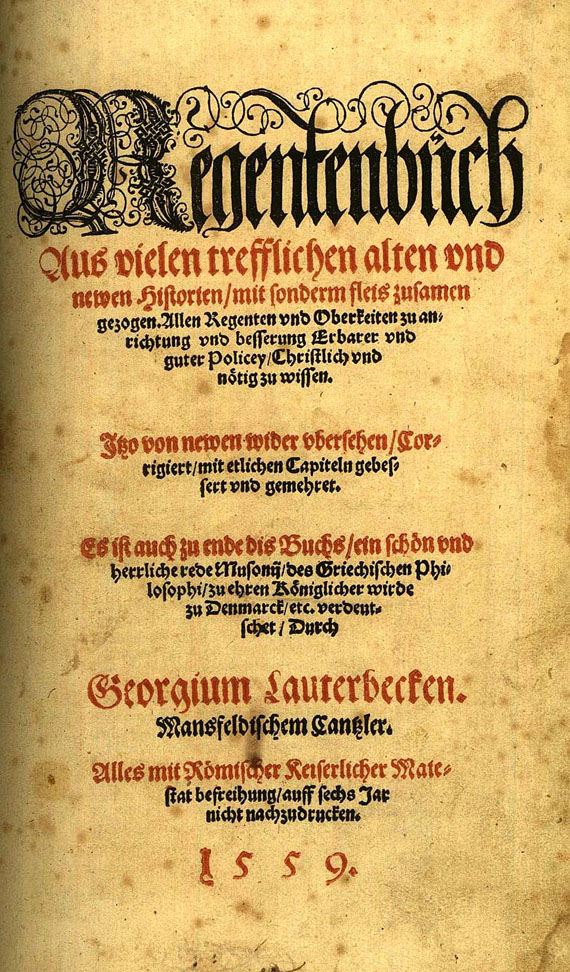 Regentenbüch
Aus vielen trefflichen alten vnd
newen Historien/mit sonderm fleis zusamen
gezogen. Allen Regenten vnd Oberkeiten zu an-
richtung vnd besserung Erbarer vnd
guter Policey/Christlich vnd
nötig zu wissen.
Jtzo von newen wider vbersehen/Cor-
rigiert/mit etlichen Capiteln gebes-
sert vnd gemehret.
Es ist auch zu ende dis Buchs/ein schön vnd
herrliche rede Musonij/des Griechischen Phi-
losophi/zu ehren Königlicher wirde
zu Denmarck/etc. verdeut-
schet / Durch
Georgium Lauterbecken.
Mansfeldischem Cantzler.
Alles mit Römischer Keiserlicher Maie-
stat befreihung/auff sechs Jar
nicht nachzudrucken.
1 5 5 9.